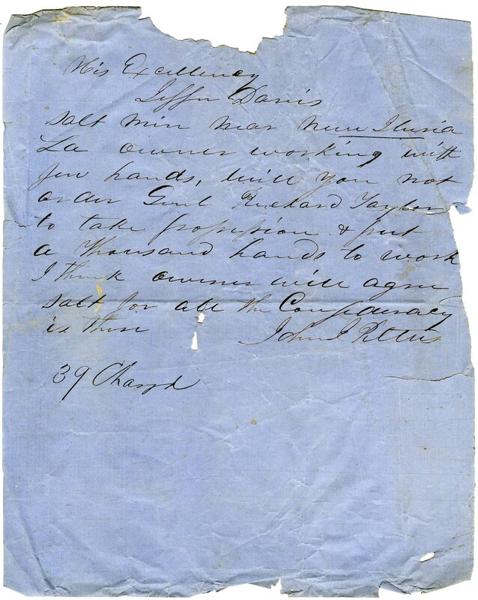 His Excellency
Jeffn Davis
Salt min near New Iberia
La owner working with
few hands, will you not
order Genl Richard Taylor
to take possession & put
a thousand hands to work
I think owner will agree
Salt for all the Confederacy
is there John J Pettus
39 Chargd